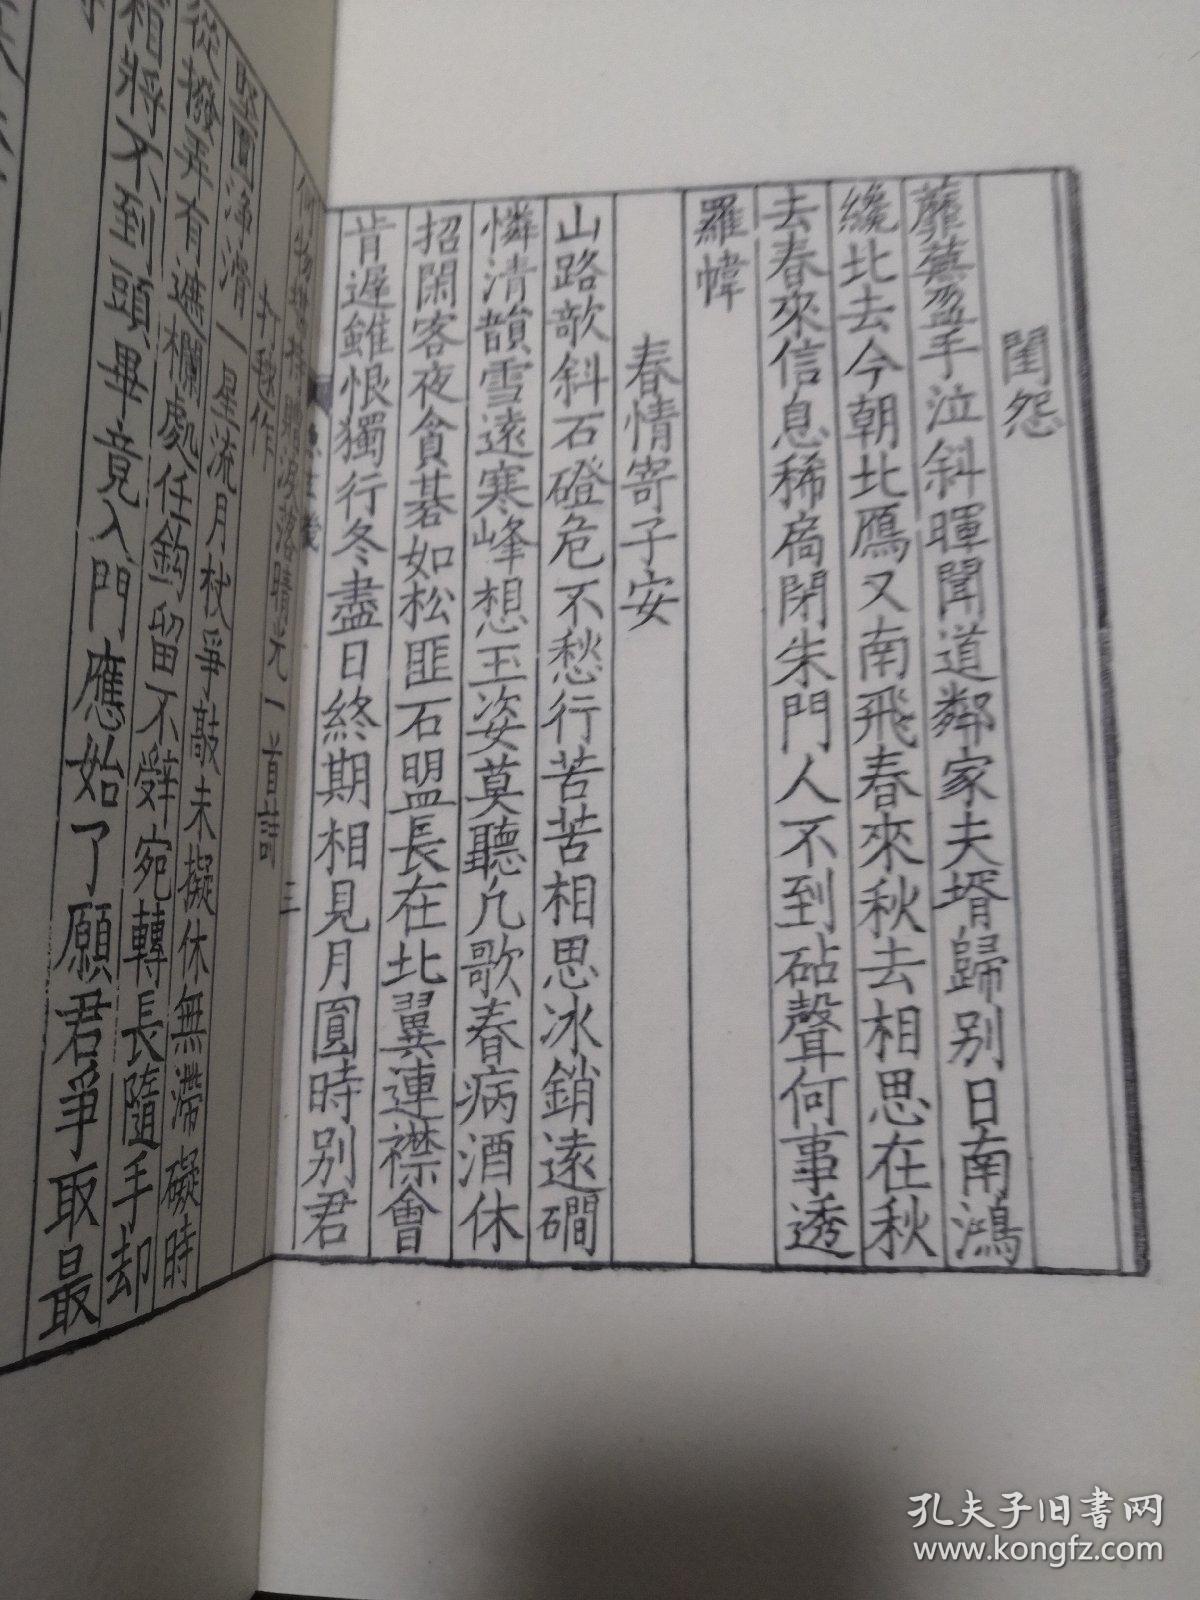 閨怨
蘼蕪盈手泣斜暉聞道鄰家夫壻歸别日南鴻
纔北去今朝北鴈又南飛春來秋去相思在秋
去春來信息稀扃閉朱門人不到砧聲何事透
羅幃
春情寄子安
山路欹斜石磴危不愁行苦苦相思冰銷遠磵
憐清韻雪遠寒峰想玉姿莫聽凡歌春病酒休
招閑客夜貪碁如松匪石盟長在比翼連襟會
肯遲雖恨獨行冬盡日終期相見月圓時别君
何物堪持贈淚落晴光一首詩
三
打毬作
堅圓淨滑一星流月杖爭敲未擬休無滯礙時
從撥弄有遮欄處任鈎留不辭宛轉長隨手却
將不到頭畢竟入門應始了願君爭取最
孔夫子旧书网
www.kongfz.com